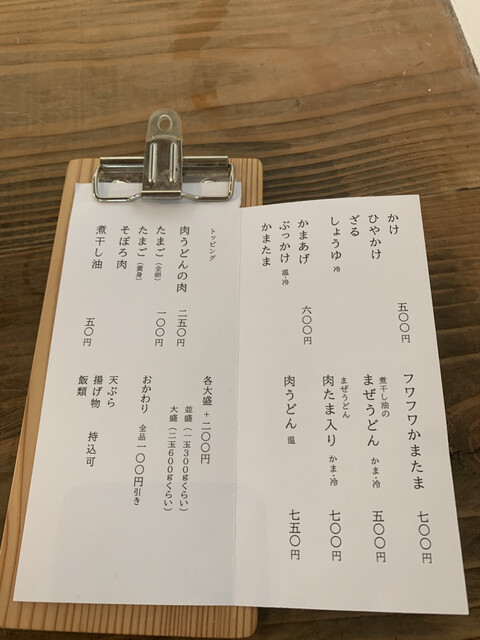 かけ
ひやかけ
ざる
しょうゆ 冷
五〇〇円
かまあげ
ぶっかけ 温・冷
かまたま
六〇〇円
フワフワかまたま 七〇〇円
煮干し油の
まぜうどん かま・冷 五〇〇円
まぜうどん
肉たま入り かま・冷 七〇〇円
肉うどん 温 七五〇円
トッピング
肉うどんの肉 二五〇円
たまご（全卵） 一〇〇円
たまご（黄身）
そぼろ肉
煮干し油 五〇円
各大盛 + 二〇〇円
並盛（一玉300gくらい）
大盛（二玉600gくらい）
おかわり 全品一〇〇円引き
天ぷら
揚げ物 持込可
飯類